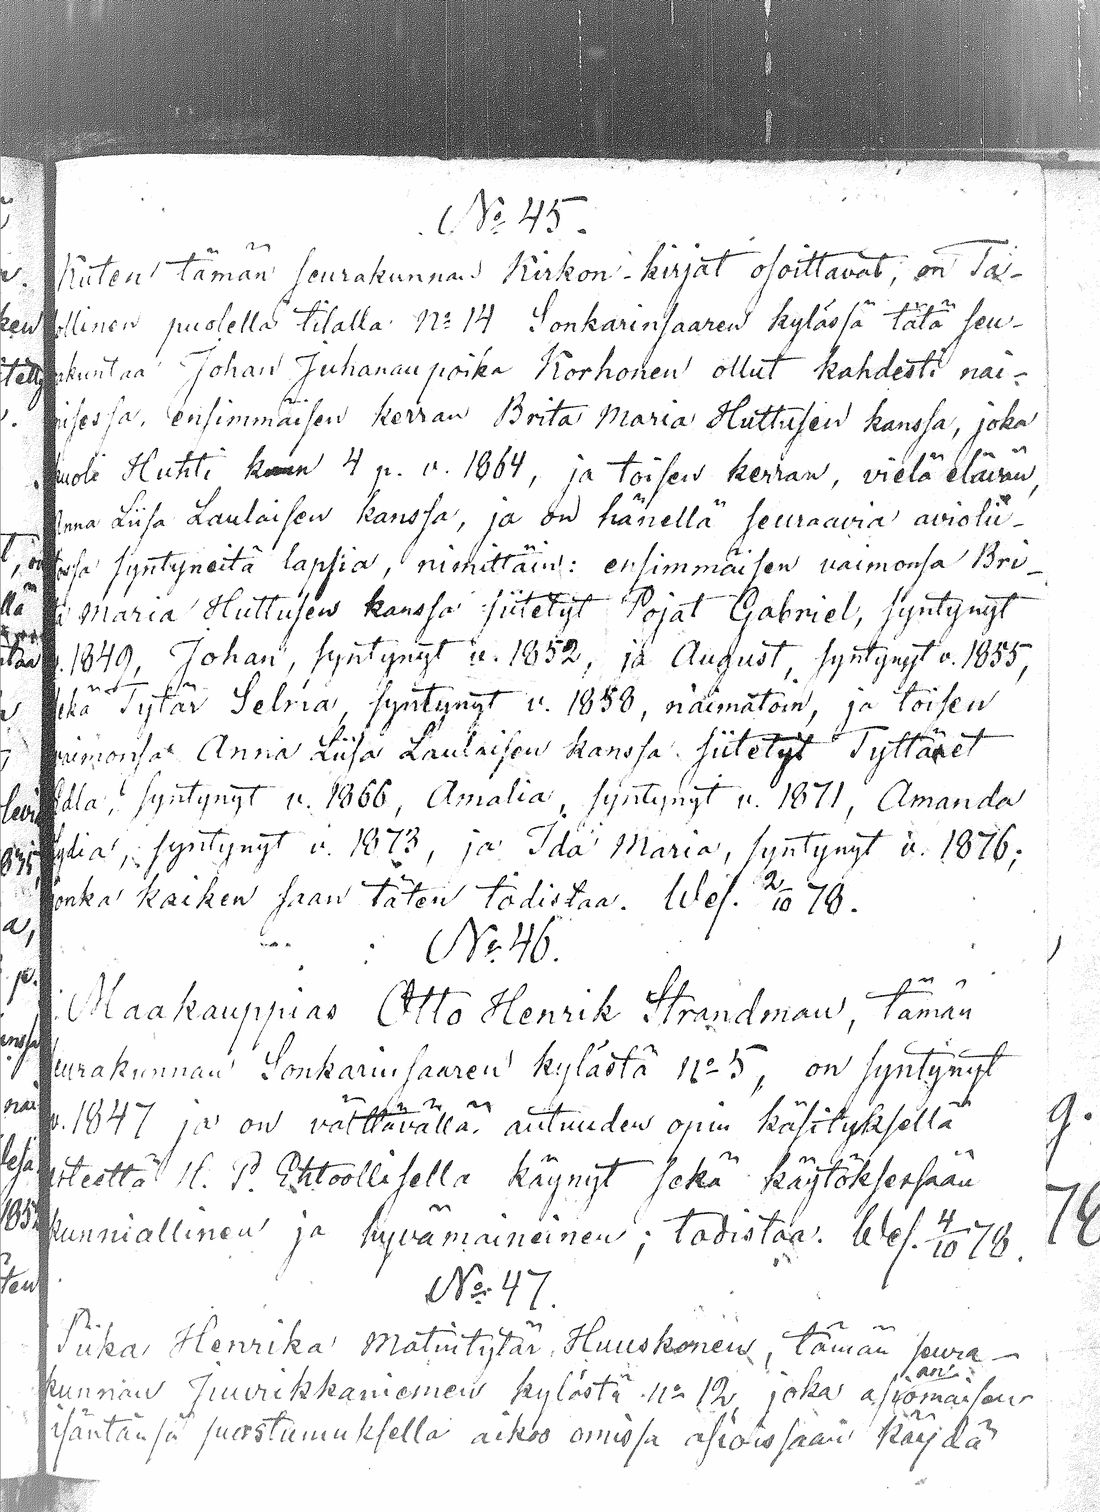 № 45.
Kuten tämän seurakunnan Kirkon-kirjat osoittavat, on Ta-
ollinen puolella tilalla № 14 Sonkarinsaaren kylässä tätä seu-
rakuntaa Johan Juhananpoika Korhonen ollut kahdesti nai-
misessa, ensimmäisen kerran Brita Maria Huttusen kanssa, joka
kuoli Huhti kuun 4 p. v. 1864, ja toisen kerran, vielä elävän,
Anna Liisa Laulaisen kanssa, ja on hänellä seuraavia aviolii-
tossa syntyneitä lapsia, nimittäin: ensimmäisen vaimonsa Bri-
ta Maria Huttusen kanssa siitetyt Pojat Gabriel, syntynyt
v. 1849, Johan, syntynyt v. 1852, ja August, syntynyt v. 1855,
sekä Tytär Selma, syntynyt v. 1858, naimatoin, ja toisen
vaimonsa Anna Liisa Laulaisen kanssa siitetyt Tyttäret
Edla, syntynyt v. 1866, Amalia, syntynyt v. 1871, Amanda
Lydia, syntynyt v. 1873, ja Ida Maria, syntynyt v. 1876;
jonka kaiken saan täten todistaa. Wes. 2/10 78.
№ 46.
Maakauppias Otto Henrik Strandman, tämän
seurakunnan Sonkarinsaaren kylästä № 5, on syntynyt
v. 1847 ja on välttävällä autuuden opin käsityksellä
esteettä H. P. Ehtoollisella käynyt sekä käytöksessään
kunniallinen ja hyvämaineinen; todistaa. Wes. 4/10 78.
№ 47.
Piika Henrika Matintytär Huuskonen, tämän seura-
kunnan Juurikkaniemen kylästä № 12, joka asianomaisen
isäntänsä suostumuksella aikoo omissa asioissaan käydä